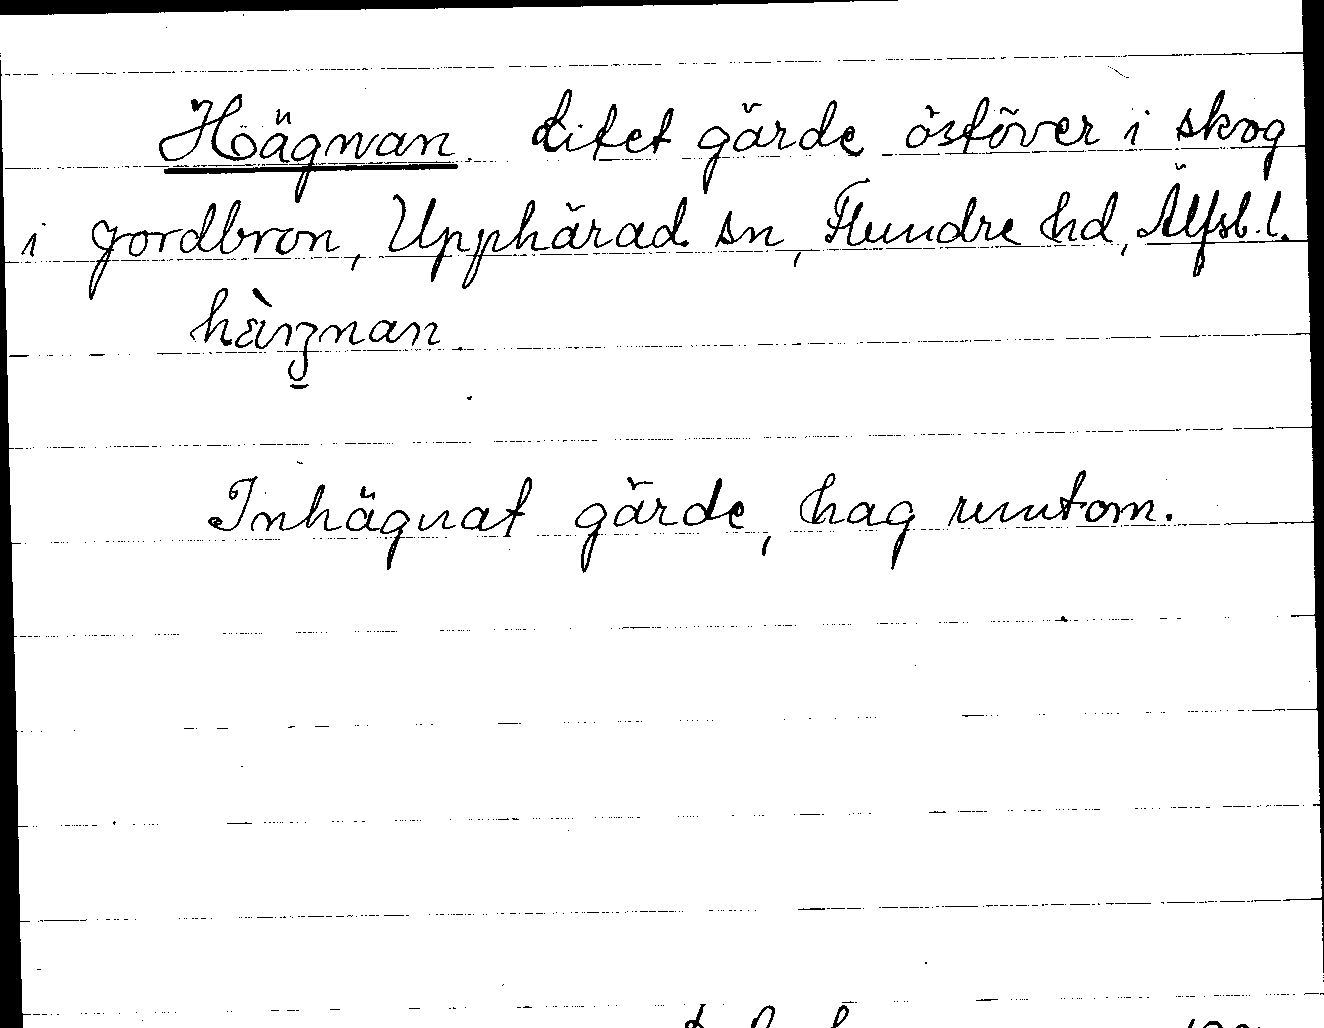 Hägnan. Litet gärde öståver i skog
i Jordbron, Upphärad sn, Flundre hd, Älfsb. l.
Inhägnat gärde, hag runtom.